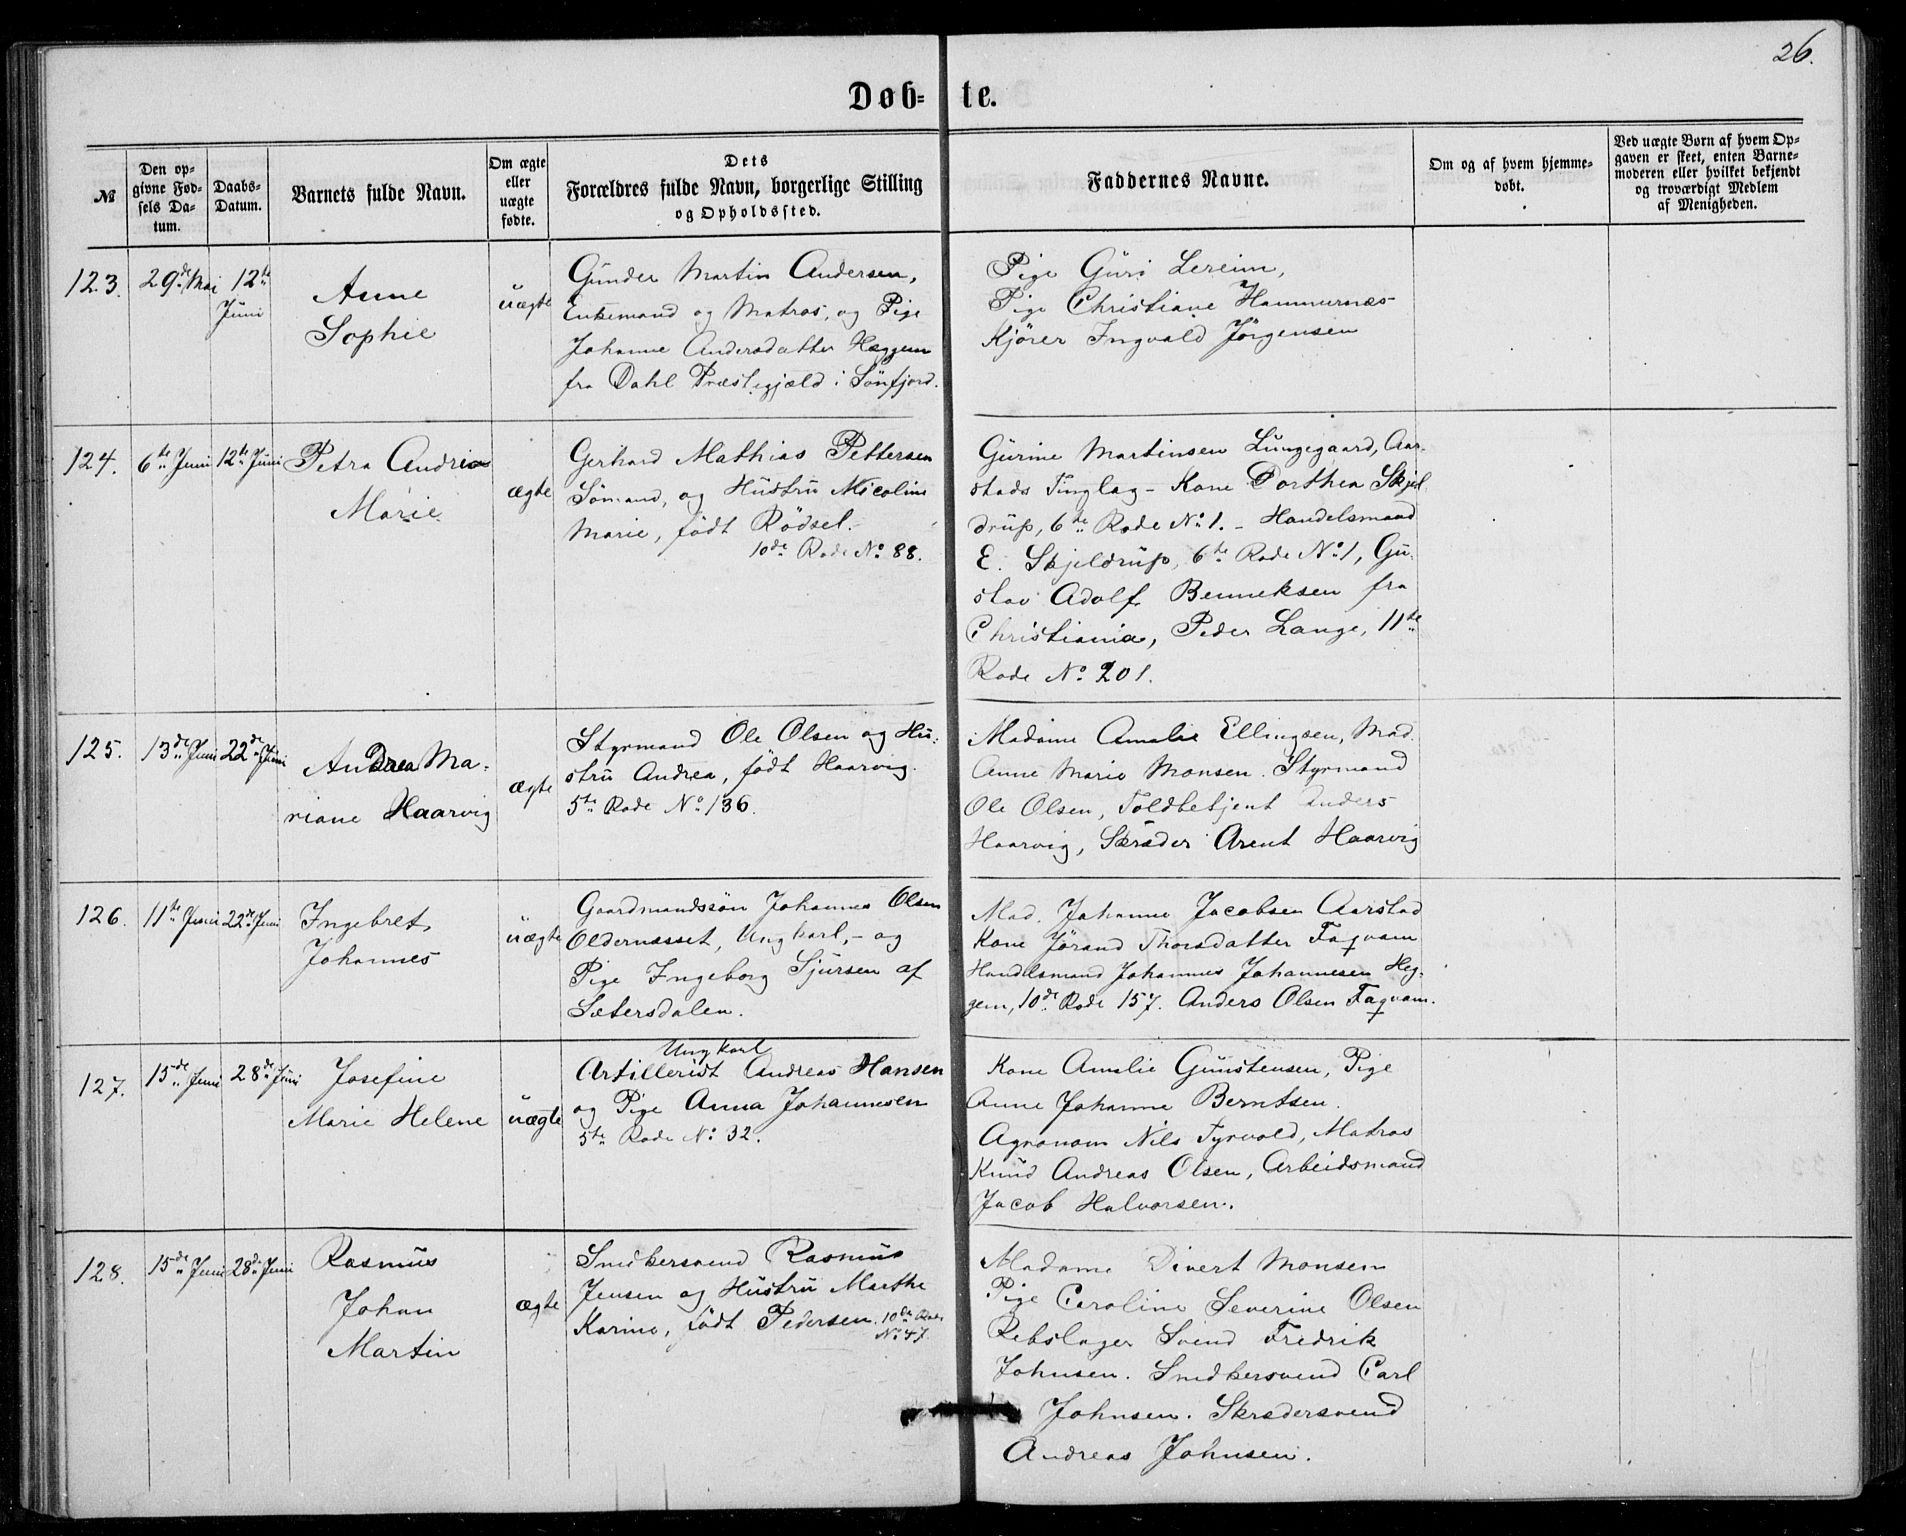 26.
Døb-te.
№
Den op-
givne Fød-
sels Da-
tum.
Daabs-
Datum.
Barnets fulde Navn.
Om ægte
eller
uægte
fødte.
Dets
Forældres fulde Navn, borgerlige Stilling
og Opholdssted.
Faddernes Navne.
Om og af hvem hjemme-
døbt.
Ved uægte Børn af hvem Op-
gaven er skeet, enten Barne-
moderen eller hvilket bekjendt
og troværdigt Medlem
af Menigheden.
123.
29de Mai
12te
Juni
Anne
Sophie
uægte
Gunder Martin Andersen,
Enkemand og Matros, og Pige
Johanne Andersdatter Hæggem
fra Dahl Præstegjæld i Sönfjord.
Pige Guri Lereim,
Pige Christiane Hammernæs
Kjörer Ingvald Jörgensen
124.
6te Juni
12te Juni
Petra Andrea
Marie
ægte
Gerhard Mathias Pettersen
Sömand, og Hustru Nicoline
Marie, födt Rödsel.
10de Rode No 88.
Gurine Martinsen Lungegaard, Aar-
stads Tinglag - Kone Dorthea Skjel
drup, 6te Rode No 1. - Handelsmand
E. Skjeldrup, 6te Rode No 1, Gu-
stav Adolf Benneksen fra
Christiania, Peder Lange, 11te
Rode No 201.
125.
13de Juni
22de Juni
Andrea Ma-
riane Haarvig
ægte
Styrmand Ole Olsen og Hu-
stru Andrea, födt Haarvig.
5te Rode No 136.
Madame Amalie Ellingsen, Mad.
Anne Marie Monsen. Styrmand
Ole Olsen, Toldbetjent Anders
Haarvig, Skræder Arent Haarvig
126.
11te Juni
22de Juni
Ingebret
Johannes
uægte
Gaardmandssön Johannes Olsen
Oldernæsset, Ungkarl, - og
Pige Ingeborg Sjursen af
Sætersdalen.
Mad. Johanne Jacobsen Aarstad
Kone Jörand Thorsdatter Faqvam
Handelsmand Johannes Johannesen Heg-
gem, 10de Rode 157. Anders Olsen Faqvam.
127.
15de Juni
28de Juni
Josefine
Marie Helene
uægte
Ungkarl
Artillerist Andreas Hansen
og Pige Anna Johannesen
5te Rode No 32.
Kone Amalie Gunstensen, Pige
Anne Johanne Berntsen.
Agronom Nils Tyrvold, Matros
Knud Andreas Olsen, Arbeidsmand
Jacob Halvorsen.
128.
15de Juni
28de Juni
Rasmus
Johan
Martin
ægte
Snedkersvend Rasmus
Jensen og Hustru Marthe
Karine, födt Pedersen. 10de Rode
No 47.
Madame Divert Monsen
Pige Caroline Severine Olsen
Rebslager Svend Fredrik
Johnsen. Snedkersvend Carl
Johnsen. Skrædersvend
Andreas Johnsen.